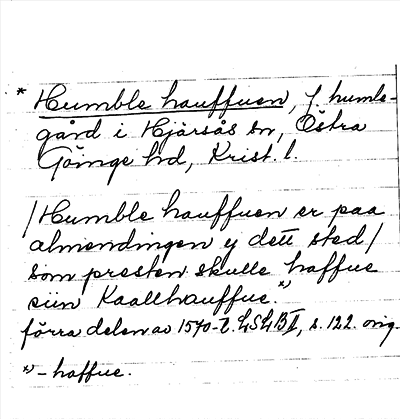 * Humble hauffuen, f. humle-
gård i Hjärsås sn, Östra
Göinge hd, Krist. l.
/Humble hauffuen er paa
almendingen y dett sted/
som presten skulle haffue
siin Kaallhauffue."*)
förra delen av 1570-t. LSLB II, s. 122. orig.
*) - haffue.